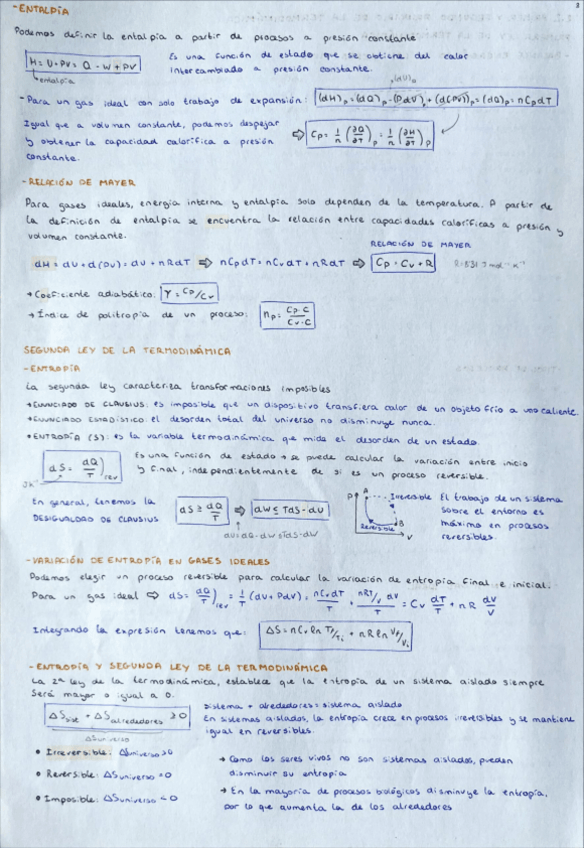 3
-ENTALPÍA
Podemos definir la entalpía a partir de procesos a presión constante
H = U + PV = Q - W + PV
entalpía
Es una función de estado que se obtiene del calor
intercambiado a presión constante.
-Para un gas ideal con solo trabajo de expansión: (dH)p = (dQ)p - (PdV)p + (d(PV))p = (dQ)p = nCpdT
Igual que a volumen constante, podemos despejar
y obtener la capacidad calorífica a presión
constante.
⇒ Cp = 1/n (∂Q/∂T)p = 1/n (∂H/∂T)p
-RELACIÓN DE MAYER
Para gases ideales, energía interna y entalpía solo dependen de la temperatura. A partir de
la definición de entalpía se encuentra la relación entre capacidades caloríficas a presión y
volumen constante.
RELACIÓN DE MAYER
dH = dU + d(PV) = dU + nRdT ⇒ nCpdT = nCvdT + nRdT ⇒ Cp = Cv + R
→ Coeficiente adiabático: γ = Cp/Cv
→ Índice de politropía de un proceso: np = Cp-C/Cv-C
SEGUNDA LEY DE LA TERMODINÁMICA
-ENTROPÍA
La segunda ley caracteriza transformaciones imposibles
→ENUNCIADO DE CLAUSIUS: es imposible que un dispositivo transfiera calor de un objeto frío a uno caliente.
→ENUNCIADO ESTADÍSTICO el desorden total del universo no disminuye nunca.
→ENTROPÍA (S): es la variable termodinámica que mide el desorden de un estado.
dS = dQ/T)rev
Es una función de estado → se puede calcular la variación entre inicio
y final, independientemente de si es un proceso reversible.
En general, tenemos la
DESIGUALDAD DE CLAUSIUS
dS ≥ dQ/T ⇒ dW ≤ TdS - dU
dU=dQ-dW≤TdS-dW
P A Irreversible
Reversible B
V
El trabajo de un sistema
sobre el entorno es
máximo en procesos
reversibles.
-VARIACIÓN DE ENTROPÍA EN GASES IDEALES
Podemos elegir un proceso reversible para calcular la variación de entropía final e inicial.
Para un gas ideal ⇒ dS = dQ/T)rev = 1/T (dU + PdV) = nCvdT/T + nRT/V dV/T = Cv dT/T + nR dV/V
Integrando la expresión tenemos que: ΔS = nCv ln Tf/Ti + nR ln Vf/Vi
-ENTROPÍA Y SEGUNDA LEY DE LA TERMODINÁMICA
La 2ª ley de la termodinámica, establece que la entropía de un sistema aislado siempre
será mayor o igual a 0.
ΔSsist + ΔSalrededores ≥ 0
ΔSuniverso
Sistema + alrededores = sistema aislado
En sistemas aislados, la entropía crece en procesos irreversibles y se mantiene
igual en reversibles.
• Irreversible: ΔSuniverso > 0
• Reversible: ΔSuniverso = 0
• Imposible: ΔSuniverso < 0
→ Como los seres vivos no son sistemas aislados, pueden
disminuir su entropía
→ En la mayoría de procesos biológicos disminuye la entropía,
por lo que aumenta la de los alrededores